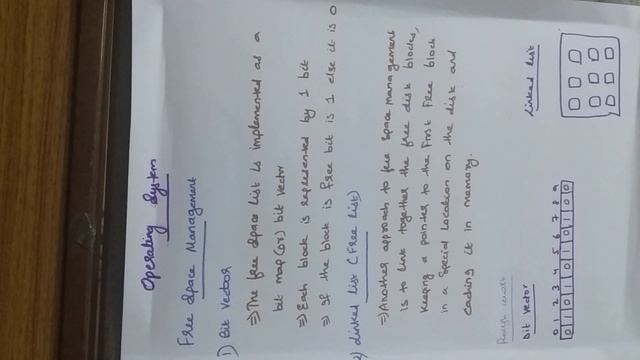 Operating System
Free Space Management
1) Bit Vector
⇒ The free space list is implemented as a
bit map (or) bit vector
⇒ Each block is represented by 1 bit
⇒ If the block is free bit is 1 else it is 0
2) Linked list (Free list)
⇒ Another approach to free space management
is to link together the free disk blocks,
keeping a pointer to the first free block
in a special location on the disk and
caching it in memory.
Rough
Bit Vector
Linked list
0 1 2 3 4 5 6 7 8 9